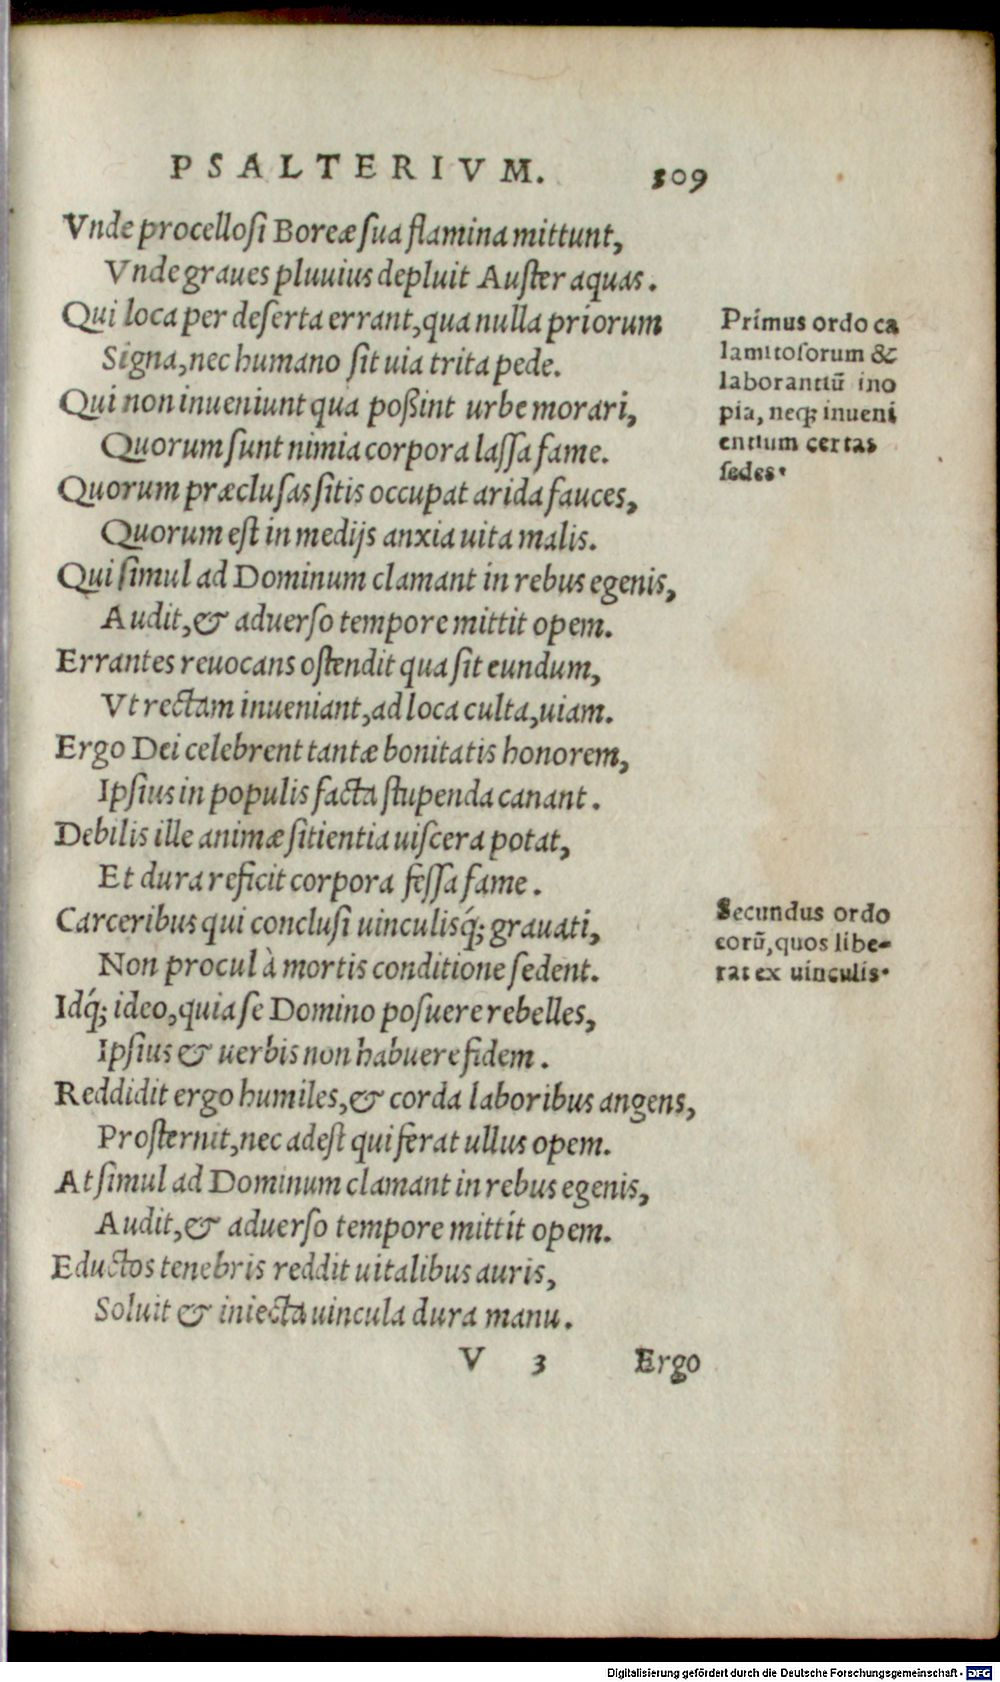 PSALTERIVM. 309
Vnde procellosi Boreæ sua flamina mittunt,
Vnde graues pluuius depluit Auster aquas.
Qui loca per deserta errant, qua nulla priorum
Signa, nec humano sit uia trita pede.
Qui non inueniunt qua poßint urbe morari,
Quorum sunt nimia corpora lassa fame.
Quorum præclusas sitis occupat arida fauces,
Quorum est in medijs anxia uita malis.
Qui simul ad Dominum clamant in rebus egenis,
Audit, & aduerso tempore mittit opem.
Errantes reuocans ostendit qua sit eundum,
Vt rectam inueniant, ad loca culta, uiam.
Ergo Dei celebrent tantæ bonitatis honorem,
Ipsius in populis facta stupenda canant.
Debilis ille animæ sitientia uiscera potat,
Et dura reficit corpora fessa fame.
Carceribus qui conclusi uinculisq́; grauati,
Non procul à mortis conditione sedent.
Idq́; ideo, quia se Domino posuere rebelles,
Ipsius & uerbis non habuere fidem.
Reddidit ergo humiles, & corda laboribus angens,
Prosternit, nec adest qui ferat ullus opem.
At simul ad Dominum clamant in rebus egenis,
Audit, & aduerso tempore mittit opem.
Eductos tenebris reddit uitalibus auris,
Soluit & iniecta uincula dura manu.
V 3 Ergo
Primus ordo ca
lamitosorum &
laborantiũ ino
pia, neqꝫ inueni
entium certas
sedes.
Secundus ordo
eorũ, quos libe-
rat ex uinculis.
Digitalisierung gefördert durch die Deutsche Forschungsgemeinschaft - DFG